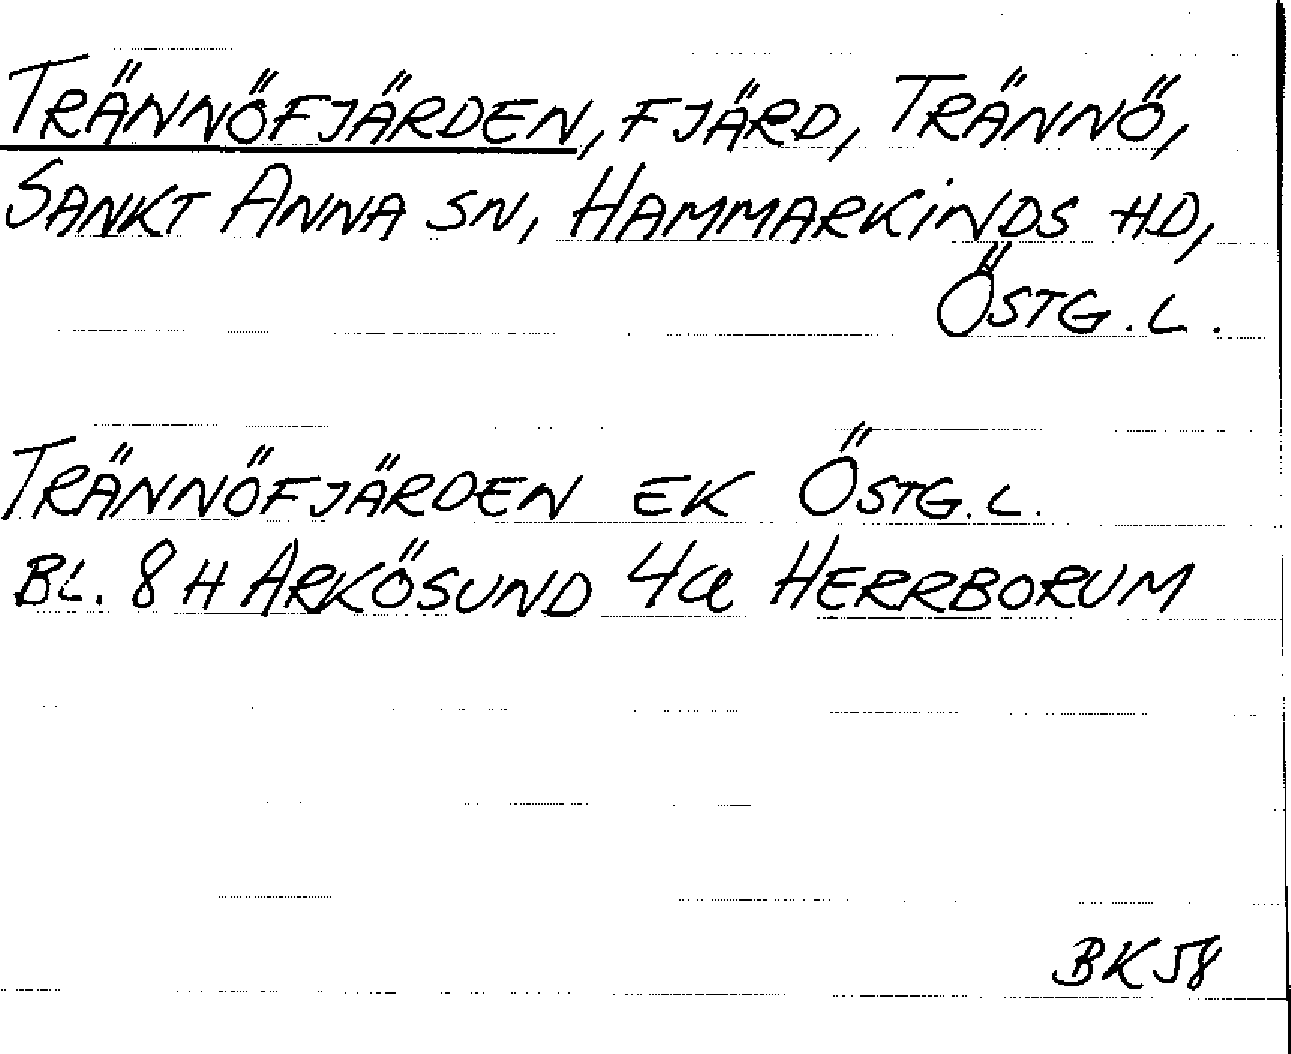 TRÄNNÖFJÄRDEN, FJÄRD, TRÄNNÖ,
SANKT ANNA SN, HAMMARKINDS HD,
ÖSTG. L.
TRÄNNÖFJÄRDEN EK ÖSTG. L.
BL. 8 H ARKÖSUND 4a HERRBORUM
BK 58